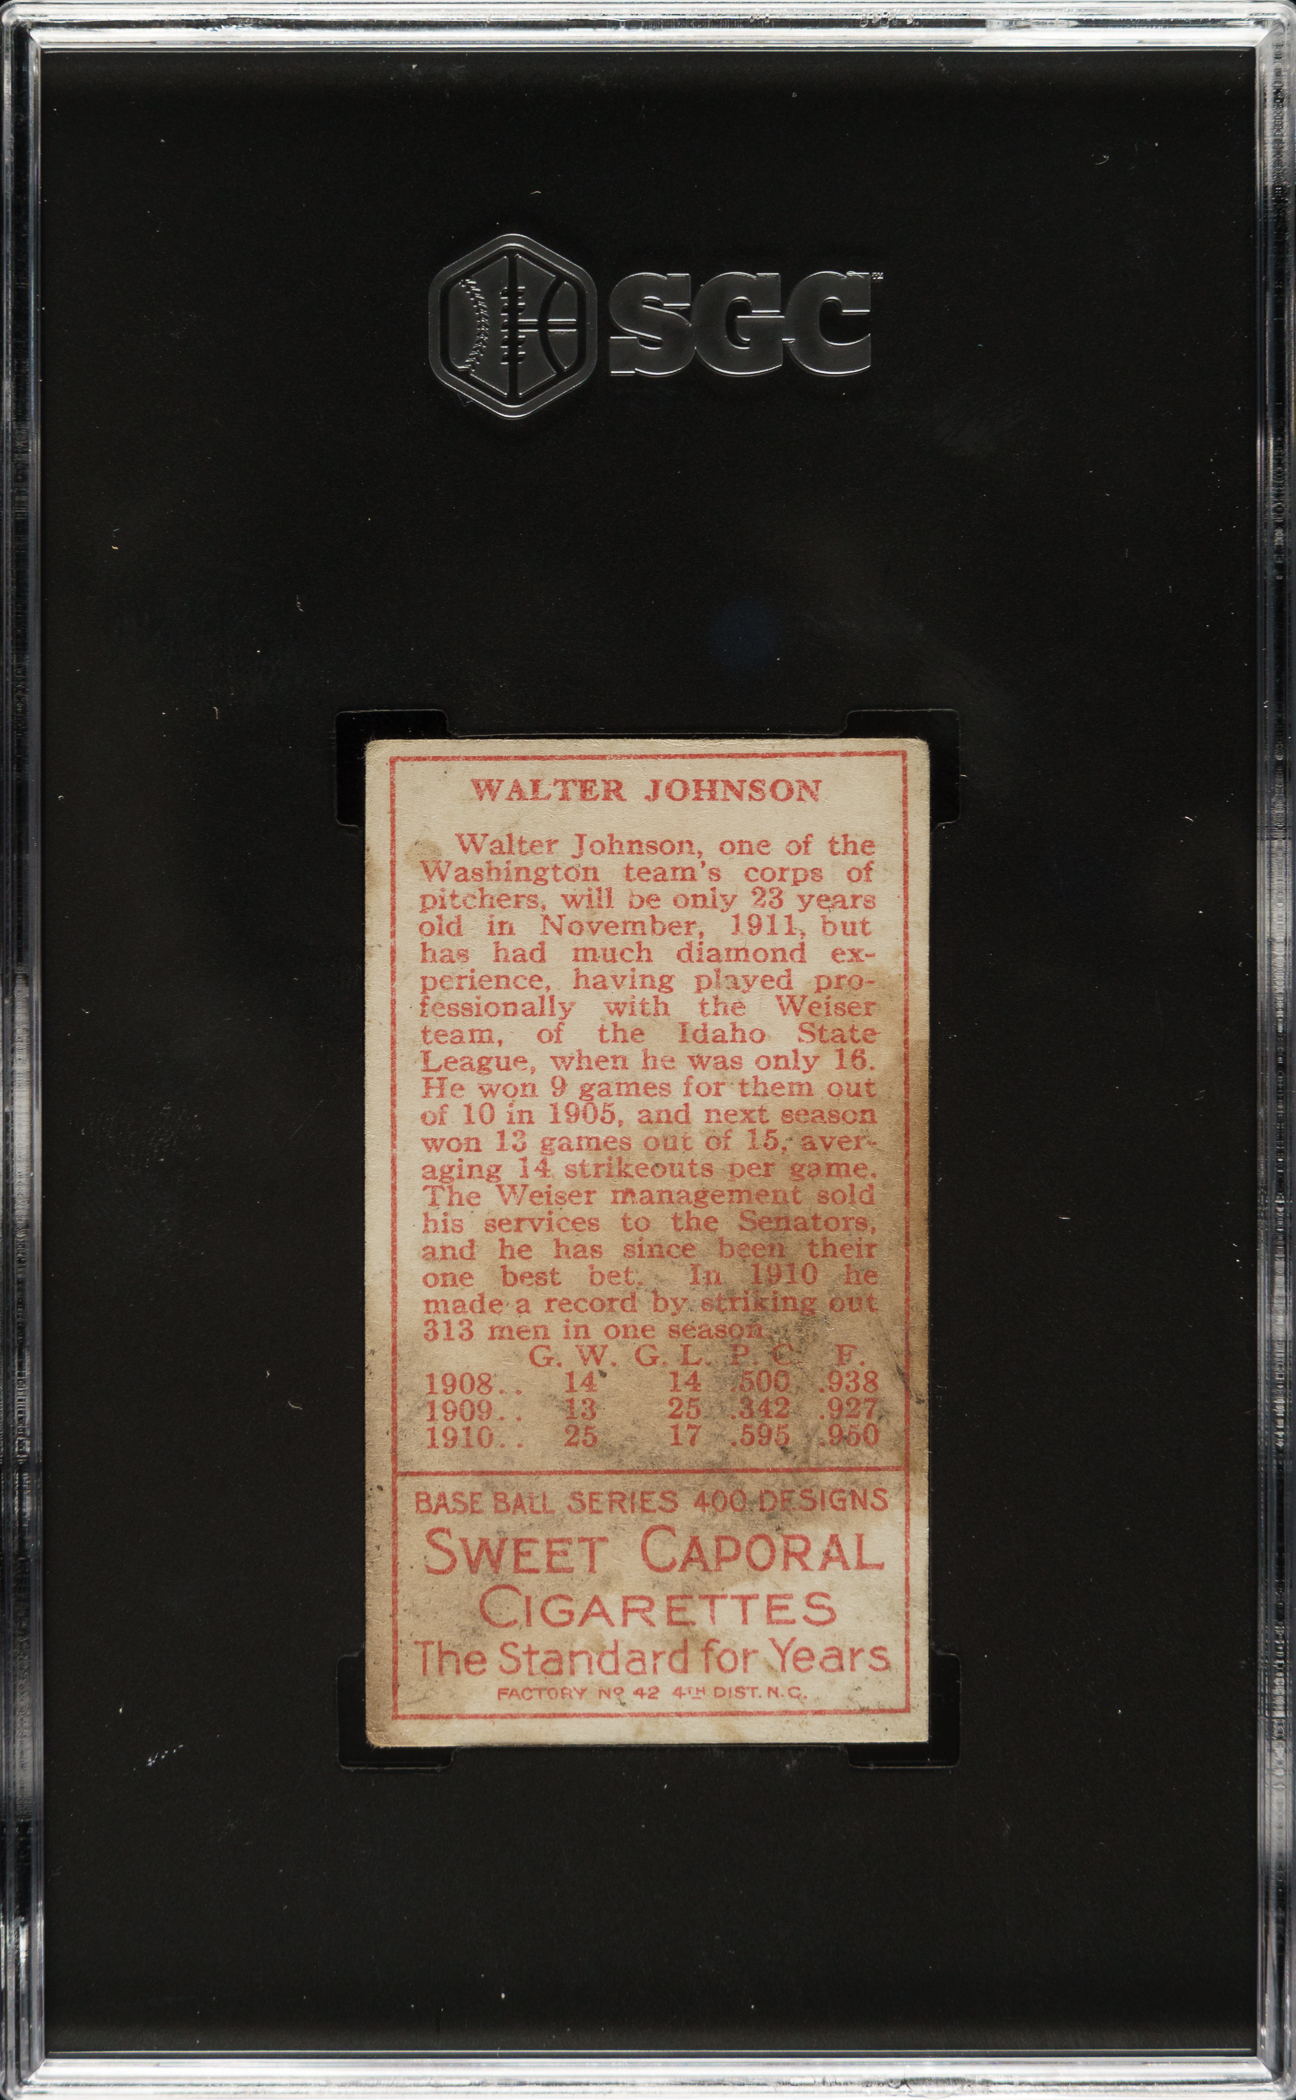 SGC™
WALTER JOHNSON
Walter Johnson, one of the
Washington team's corps of
pitchers, will be only 23 years
old in November, 1911, but
has had much diamond ex-
perience, having played pro-
fessionally with the Weiser
team, of the Idaho State
League, when he was only 16.
He won 9 games for them out
of 10 in 1905, and next season
won 13 games out of 15, aver-
aging 14 strikeouts per game.
The Weiser management sold
his services to the Senators,
and he has since been their
one best bet. In 1910 he
made a record by striking out
313 men in one season.
G. W. G. L. P. C. F.
1908.. 14 14 .500 .938
1909.. 13 25 .342 .927
1910.. 25 17 .595 .950
BASE BALL SERIES 400 DESIGNS
SWEET CAPORAL
CIGARETTES
The Standard for Years
FACTORY Nº 42 4TH DIST. N.C.